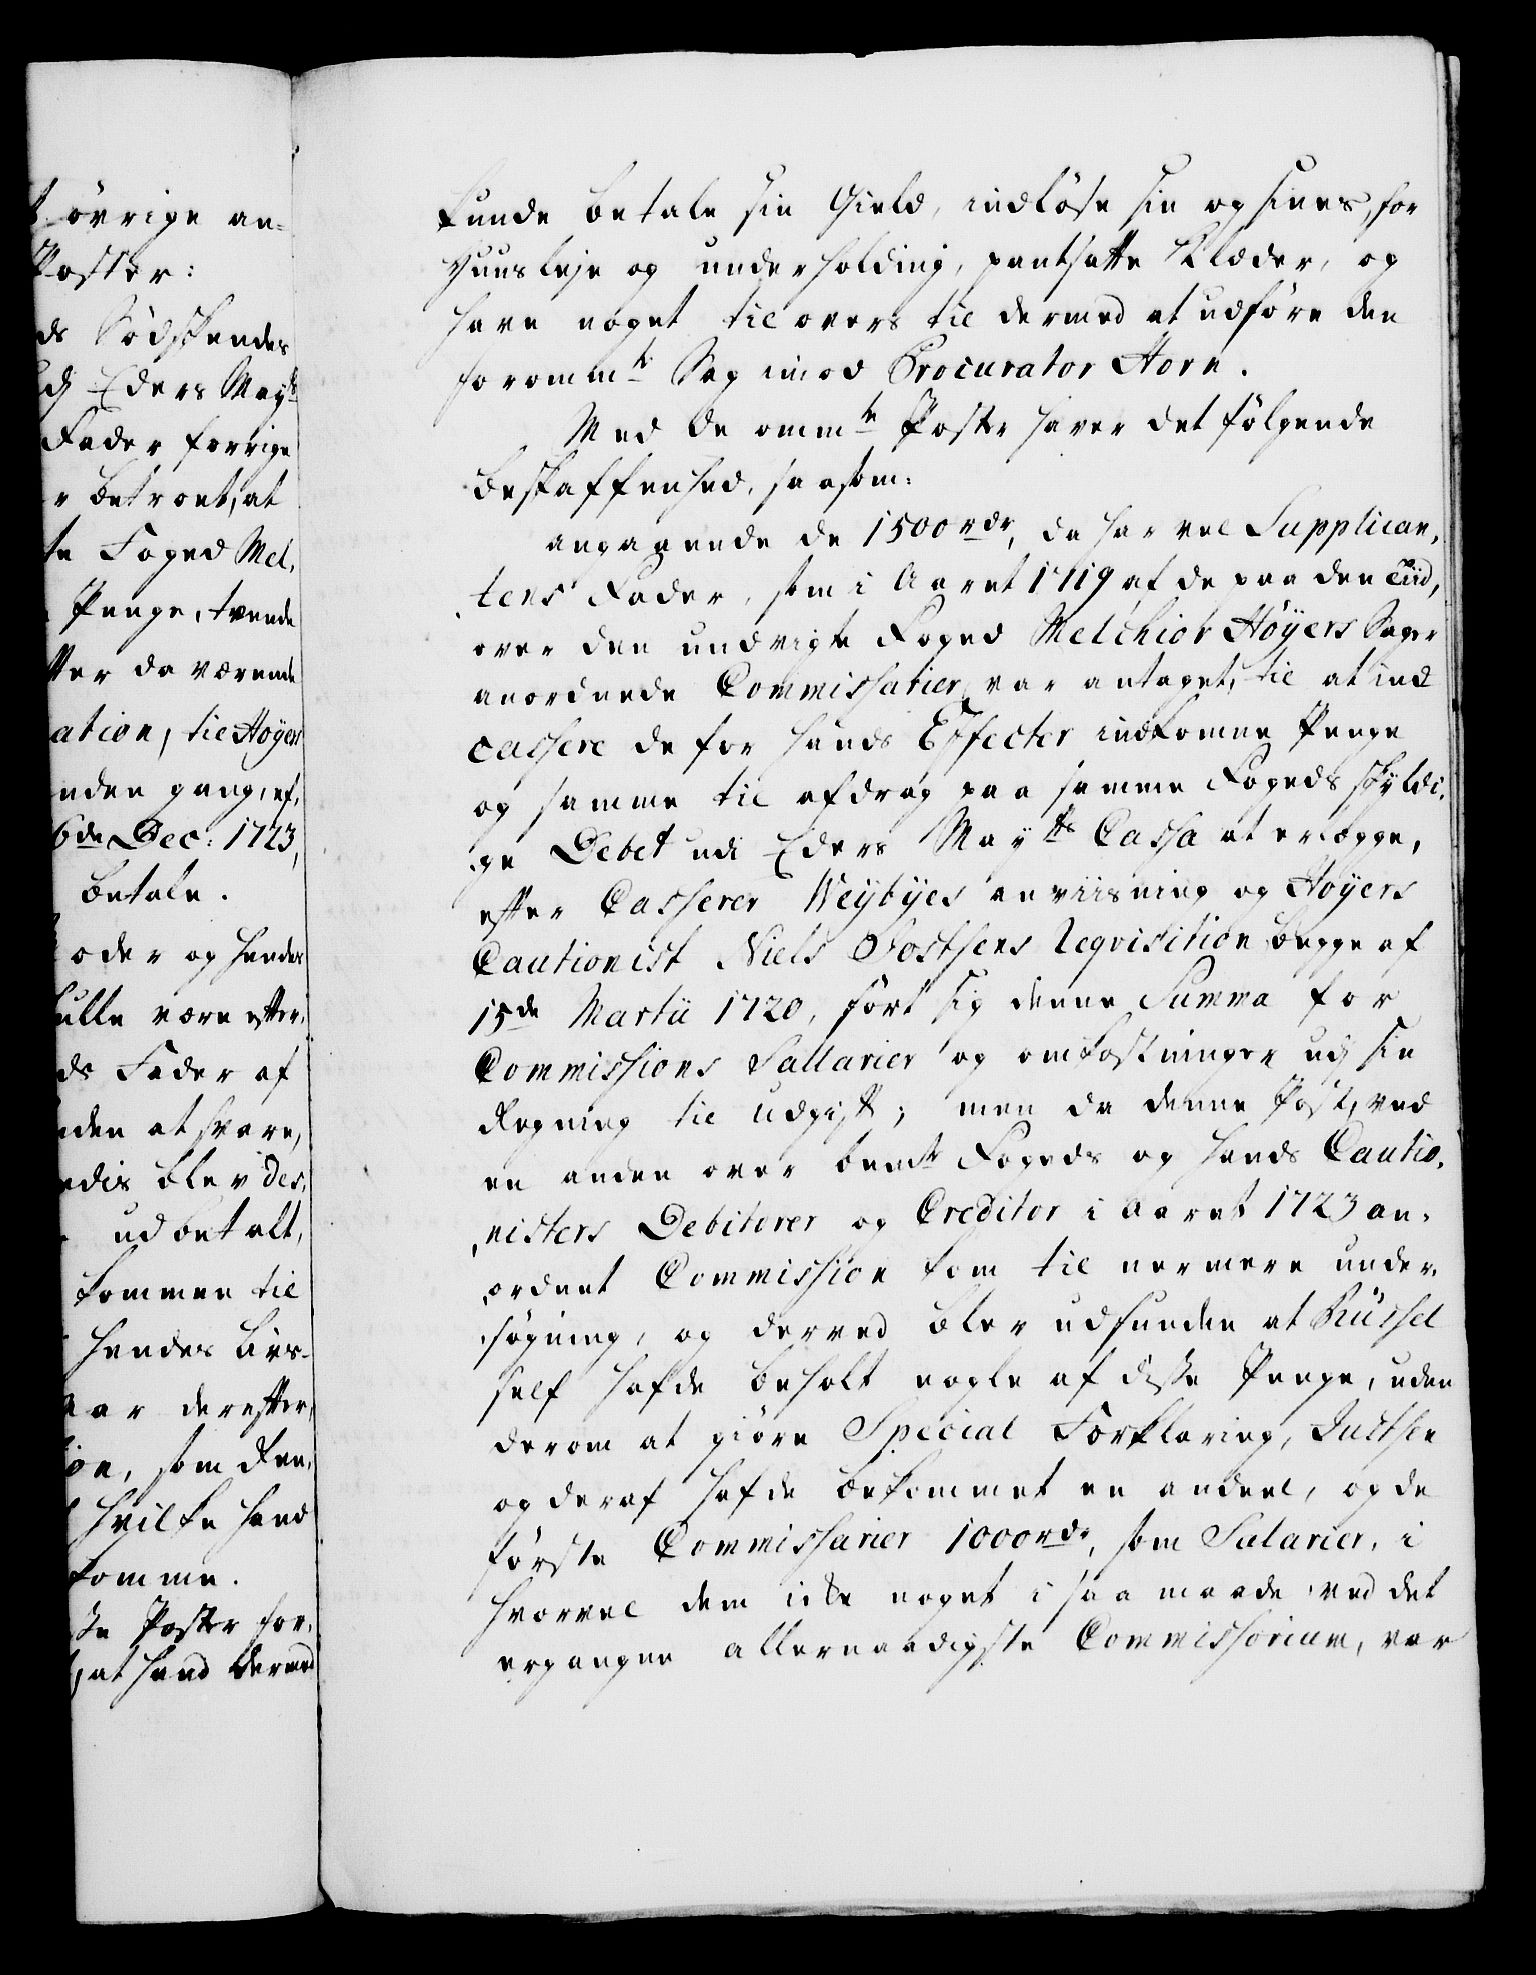 t övrige an-
Poster:
ds Södskendes
dj Eders Mayts
Fader forrige
r betroet, at
te Foged Mel,
Penge, tvende
tter da værende
ation, til Höyers
nden gang, ef,
6de Dec: 1723,
betale.
oder og hendes
ulle være efter,
ds Fader af
nden at svare,
edis blev des,
udbetalt,
kommen til
hendes Livs-
aar derefter,
ion, som Ren,
hvilke hand
komme.
ste Poster for,
, at hand dermed
kunde betale sin Gield, indlöse sin og sines, for
Huusleje og underholding, pantsatte Klæder, og
have noget til overs til dermed at udföre den
forommte Sag imod Procurator Horn.
Med de ommte Poster haver det fölgende
beskaffenhed, saasom:
angaaende de 1500 rdr, da har vel Supplican,
tens Fader, som i Aaret 1719 af de paa den Tiid,
over den undvigte Foged Melchior Höyers Sager
anordnede Commissarier, var antaget, til at ind
cassere de for hands Effecter indkomne Penge
og samme til afdrag paa samme Fogeds skyldi,
ge Debet udi Eders Mayts Cassa at erlægge,
efter Casserer Weybyes anviisning og Hoyers
Cautionist Niels Jostsens Reqvisition begge af
15de Martii 1720, fört sig denne Summa for
Commissions Sallarier og omkostninger udj sin
Regning til udgift; men da denne Post, ved
en anden over bemte Fogeds og hands Cautio,
nisters Debitorer og Creditor i Aaret 1723 an,
ordnet Commission kom til nermere under,
sögning, og derved blev udfunden at Küssel
self hafde beholt nogle af disse Penge, uden
derom at giöre Special Forklaring, Justsen
og deraf hafde bekommet en andeel, og de
förste Commissarier 1000 rdr, som Salarier, i
hvorvel dem icke noget i saa maade ved det
ergangne allernaadigste Commissorium, var